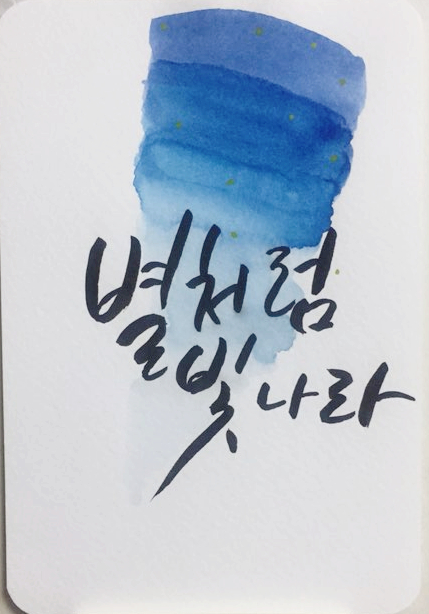 별처럼
빛나라